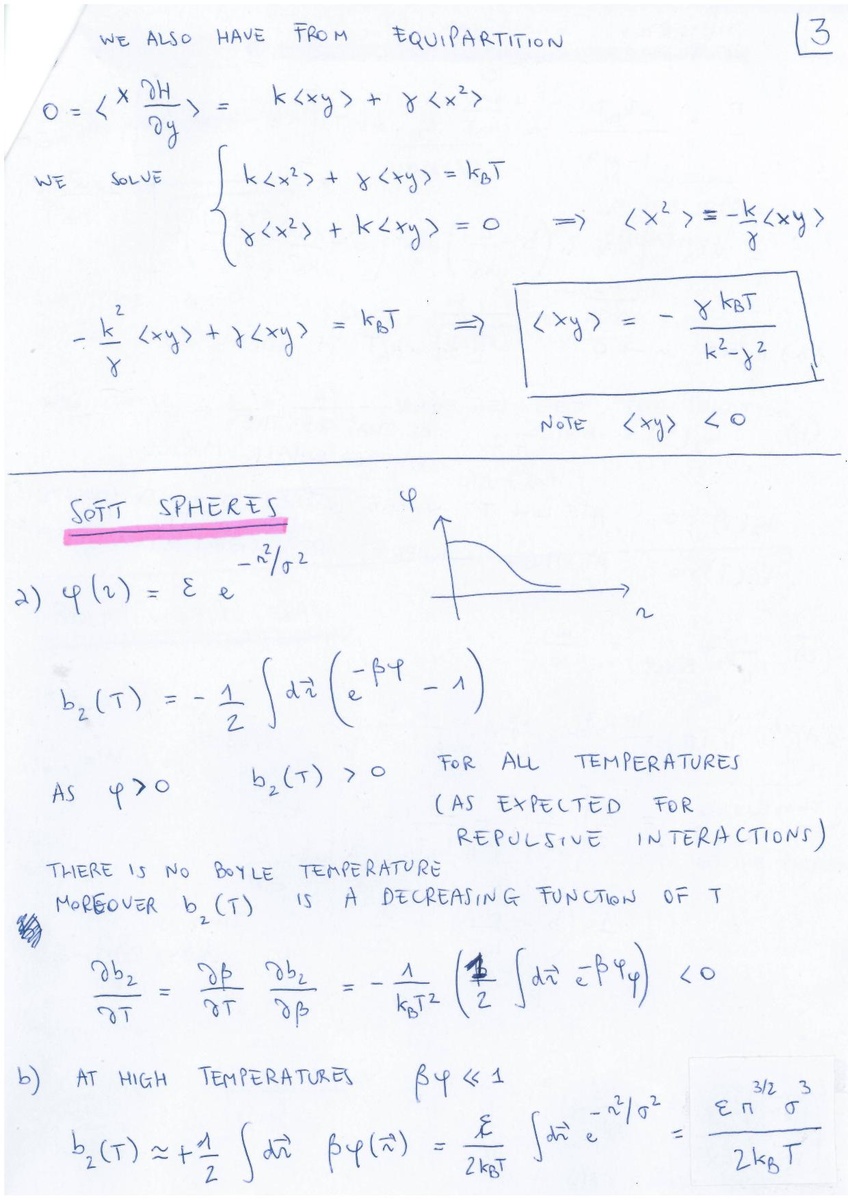 3
WE ALSO HAVE FROM EQUIPARTITION
0 = <x ∂H/∂y> = k<xy> + γ<x²>
WE SOLVE { k<x²> + γ<xy> = k_BT
γ<x²> + k<xy> = 0 ⟹ <x²> = -k/γ <xy>
- k²/γ <xy> + γ<xy> = k_BT ⟹ <xy> = - γ k_BT / (k²-γ²)
NOTE <xy> < 0
SOFT SPHERES
a) φ(r) = ε e^(-r²/σ²)
φ
r
b₂(T) = - 1/2 ∫ dr⃗ (e^(-βφ) - 1)
AS φ>0 b₂(T) > 0 FOR ALL TEMPERATURES
(AS EXPECTED FOR
REPULSIVE INTERACTIONS)
THERE IS NO BOYLE TEMPERATURE
MOREOVER b₂(T) IS A DECREASING FUNCTION OF T
∂b₂/∂T = ∂β/∂T ∂b₂/∂β = - 1/(k_BT²) (1/2 ∫ dr⃗ e^(-βφ) φ) < 0
b) AT HIGH TEMPERATURES βφ ≪ 1
b₂(T) ≈ + 1/2 ∫ dr⃗ βφ(r⃗) = ε/(2k_BT) ∫ dr⃗ e^(-r²/σ²) = ε π^(3/2) σ³ / (2k_BT)